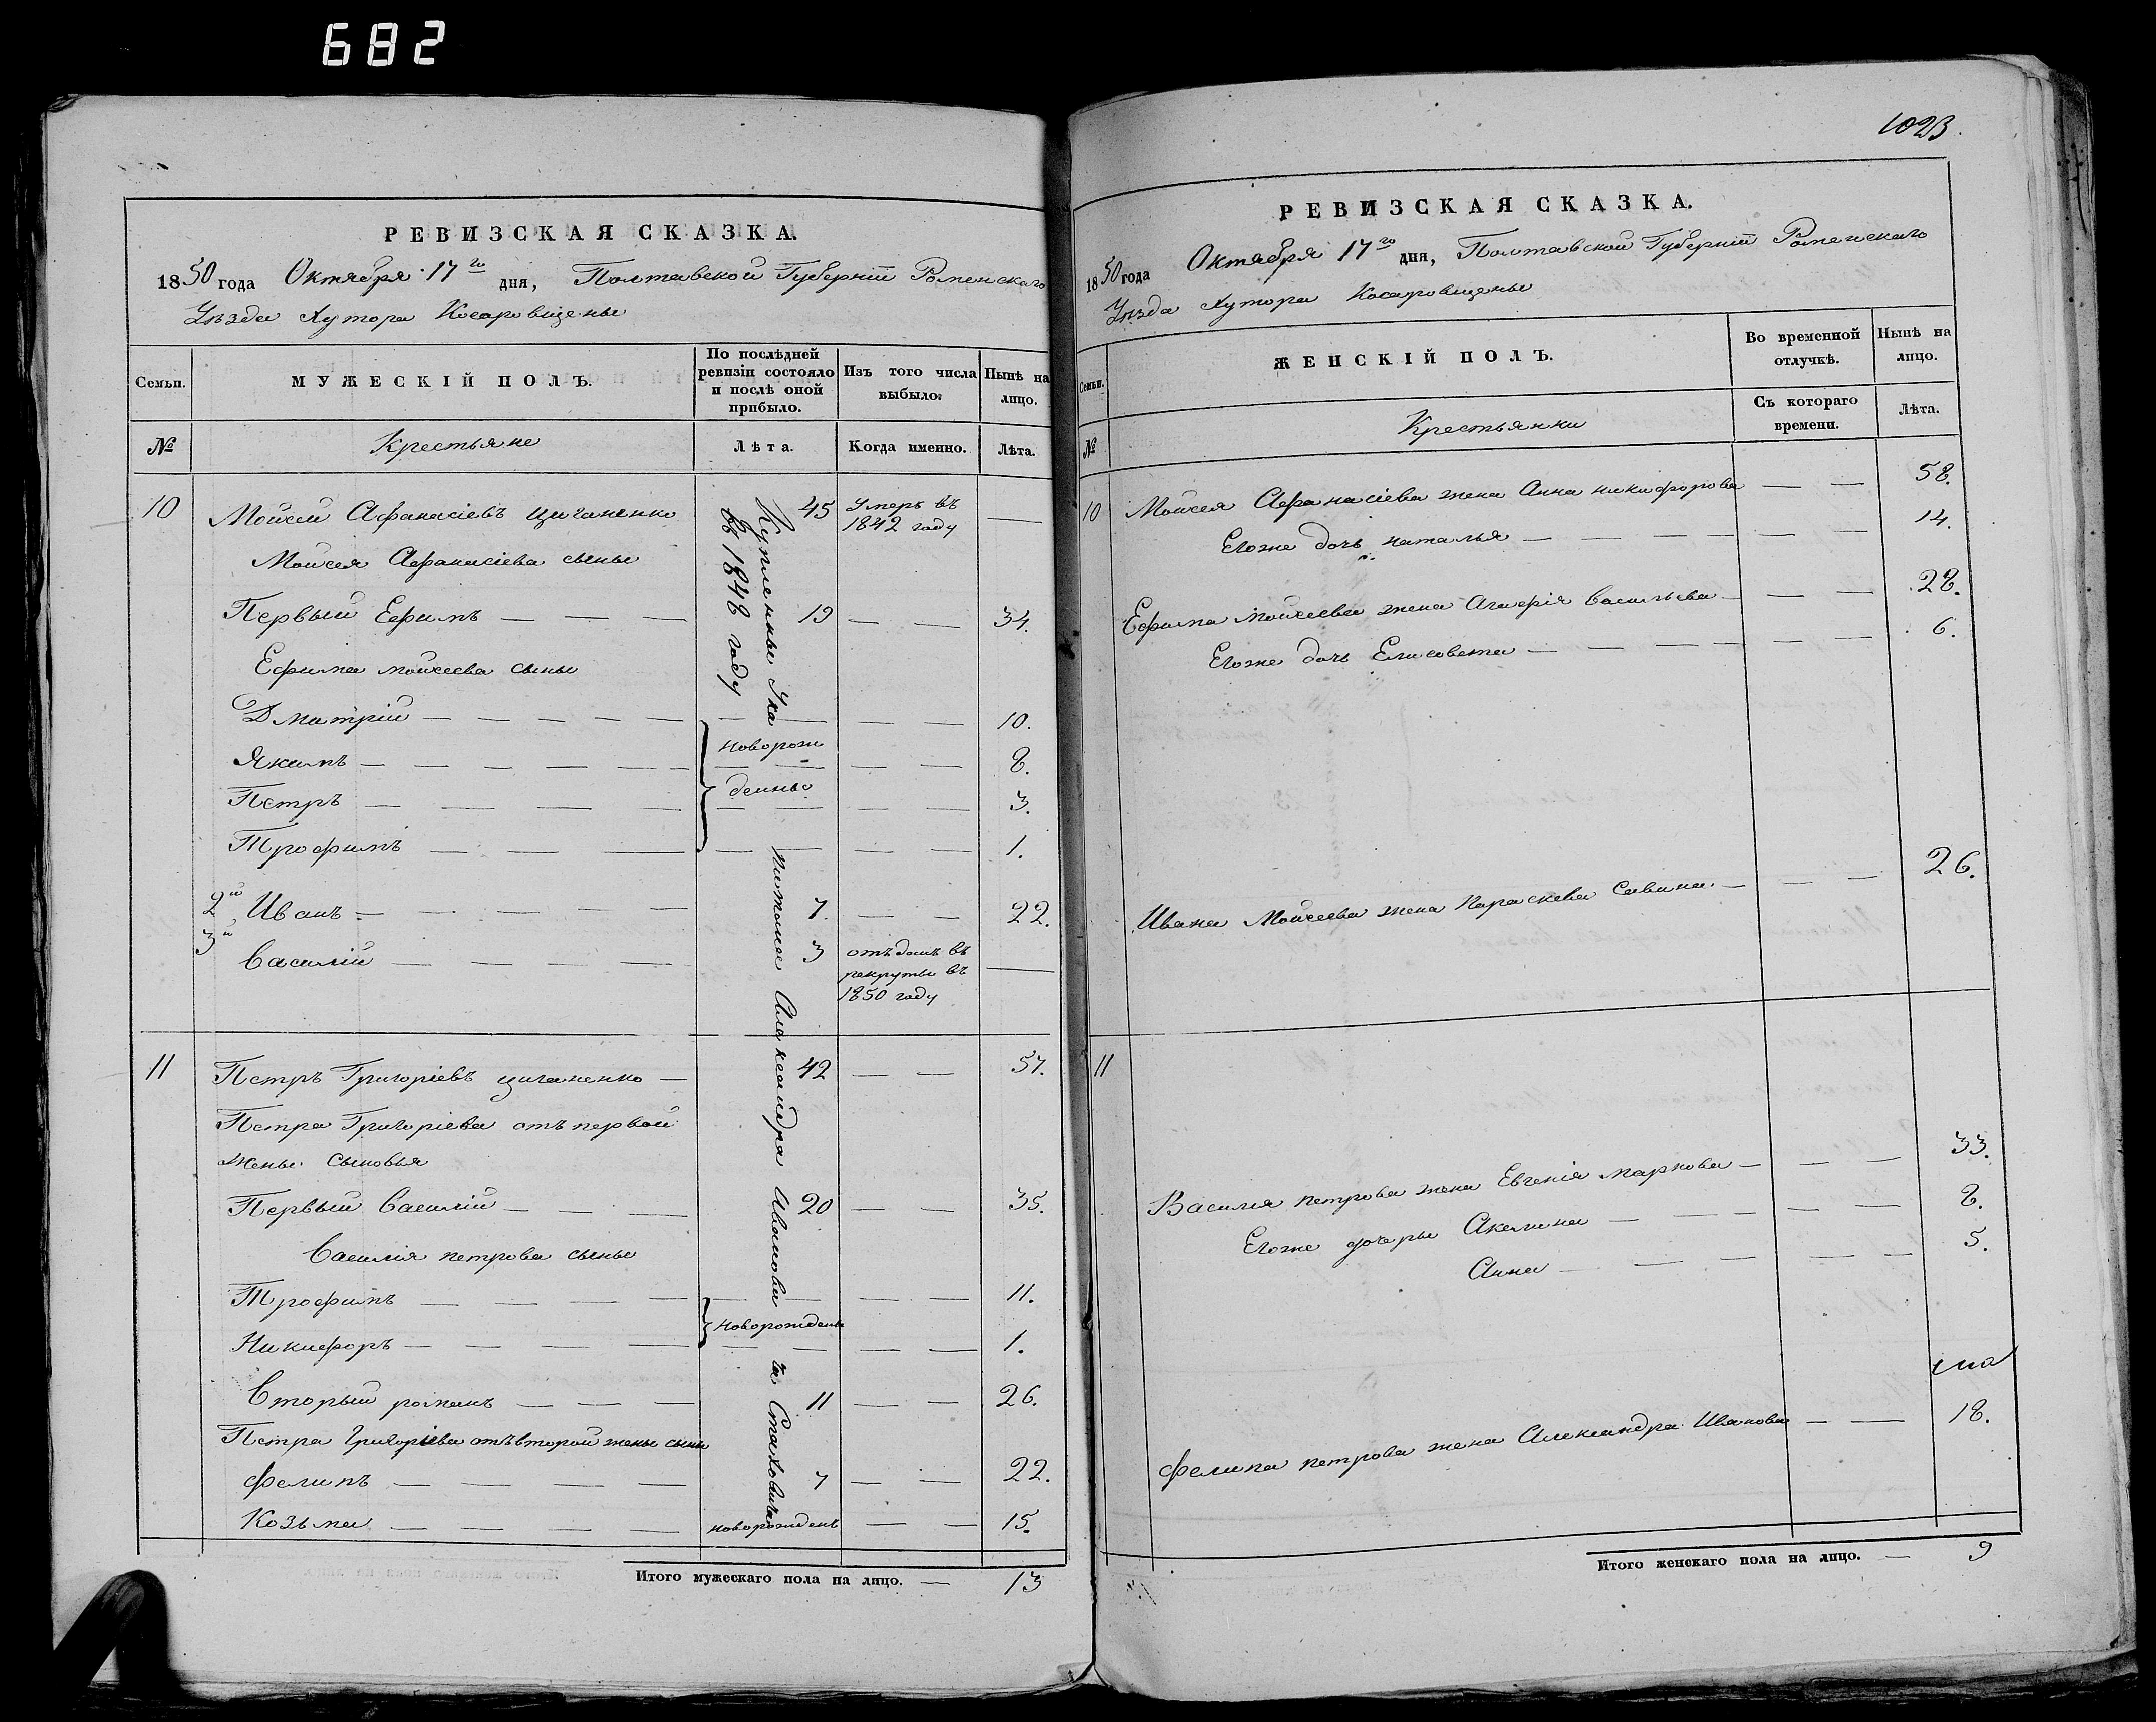 682
РЕВИЗСКАЯ СКАЗКА.
1850 года Октября 17го дня, Полтавской Губерніи Роменскаго
Уѣзда Хутора Косаровщены
Семьи. МУЖЕСКІЙ ПОЛЪ. По послѣдней ревизіи состояло и послѣ оной прибыло. Изъ того числа выбыло. Нынѣ на лицо.
№ Крестьяне Лѣта. Когда именно. Лѣта.
10 Мойсей Афанасіевъ Цыганенко 45 Умеръ въ 1842 году —
Мойсея Афанасіева сыны
Первый Ефимъ — — — 19 — — 34.
Ефима Мойсеева сыны
Дмитрій — — — — — — — 10.
Якимъ — — — — — — — 8.
Петръ — — — — — — — 3.
Трофимъ — — — — — — — 1.
новорожденные
2й Иванъ — — — — 7. — — 22.
3й Василій — — — — 3 отъданъ въ рекруты въ 1850 году —
Купленные у ка питомое Александра Иванова ча Стаховича
въ 1848 году
11 Петръ Григоріевъ Цыганенко — 42 — — 57.
Петра Григоріева отъ первой
жены сыновья
Первый Василій — — — 20 — — 35.
Василія Петрова сыны
Трофимъ — — — — — — — 11.
новорожденъ
Никифоръ — — — — — — — 1.
Вторый романъ — — — 11 — — 26.
Петра Григоріева отъ второй жены сыны
Фелипъ — — — — 7 — — 22.
Козьма — — — — новорожденъ — — 15.
Итого мужескаго пола на лицо. — 13
1023.
РЕВИЗСКАЯ СКАЗКА.
1850 года Октября 17го дня, Полтавской Губерніи Роменскаго
Уѣзда Хутора Косаровщены
Семьи. ЖЕНСКІЙ ПОЛЪ. Во временной отлучкѣ. Нынѣ на лицо.
№ Крестьянки Съ котораго времени. Лѣта.
10 Мойсея Афанасіева жена Анна никифорова — — 58.
Егоже дочь наталья — — — — — — 14.
Ефима Мойсеева жена Агафія Васильева — — — 28.
Егоже дочь Елисовета — — — — — — 6.
Ивана Мойсеева жена Параскева Савина. — — — 26.
11
Василія Петрова жена Евгенія Маркова — — — 33.
Егоже дочеры Акелина — — — — — — 8.
Анна — — — — — — 5.
Фелипа Петрова жена Александра Иванова — — 18.
Итого женскаго пола на лицо. — 9